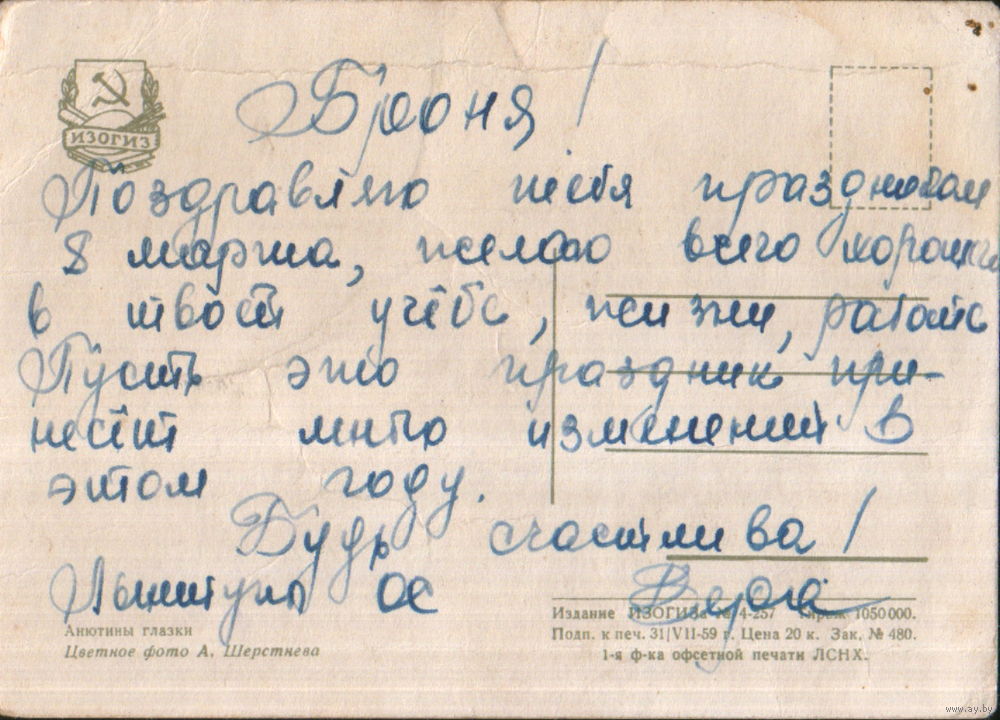 ИЗОГИЗ
Броня!
Поздравляю тебя праздником
8 марта, желаю всего хорошего
в твоей учёбе, жизни, работе
Пусть это праздник при-
несёт много изменений в
этом году.
Будь счастлива!
Вера
Анютины глазки
Цветное фото А. Шерстнева
Издание ИЗОГИЗа № 4-257 Тираж 1050000.
Подп. к печ. 31/VII-59 г. Цена 20 к. Зак. № 480.
1-я ф-ка офсетной печати ЛСНХ.
www.ay.by